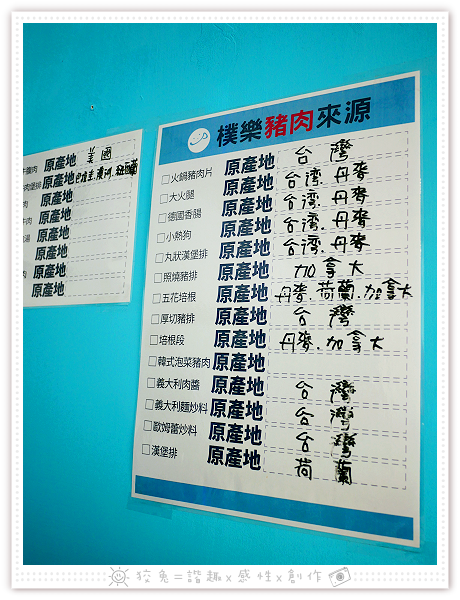 肉 原產地 美國
肉堡排 原產地 澳洲,紐西蘭
肉 原產地
肉 原產地
原產地
原產地
肉 原產地
原產地
樸樂豬肉來源
□火鍋豬肉片 原產地 台灣
□大火腿 原產地 台湾.丹麥
□德國香腸 原產地 台湾.丹麥
□小熱狗 原產地 台湾.丹麥
□丸狀漢堡排 原產地 台湾.丹麥
□照燒豬排 原產地 加拿大
□五花培根 原產地 丹麥.荷蘭.加拿大
□厚切豬排 原產地 台灣
□培根段 原產地 丹麥.加拿大
□韓式泡菜豬肉 原產地
□義大利肉醬 原產地 台灣
□義大利麵炒料 原產地 台灣
□歐姆蕾炒料 原產地 台灣
□漢堡排 原產地 荷蘭
狡兔=諧趣x感性x創作